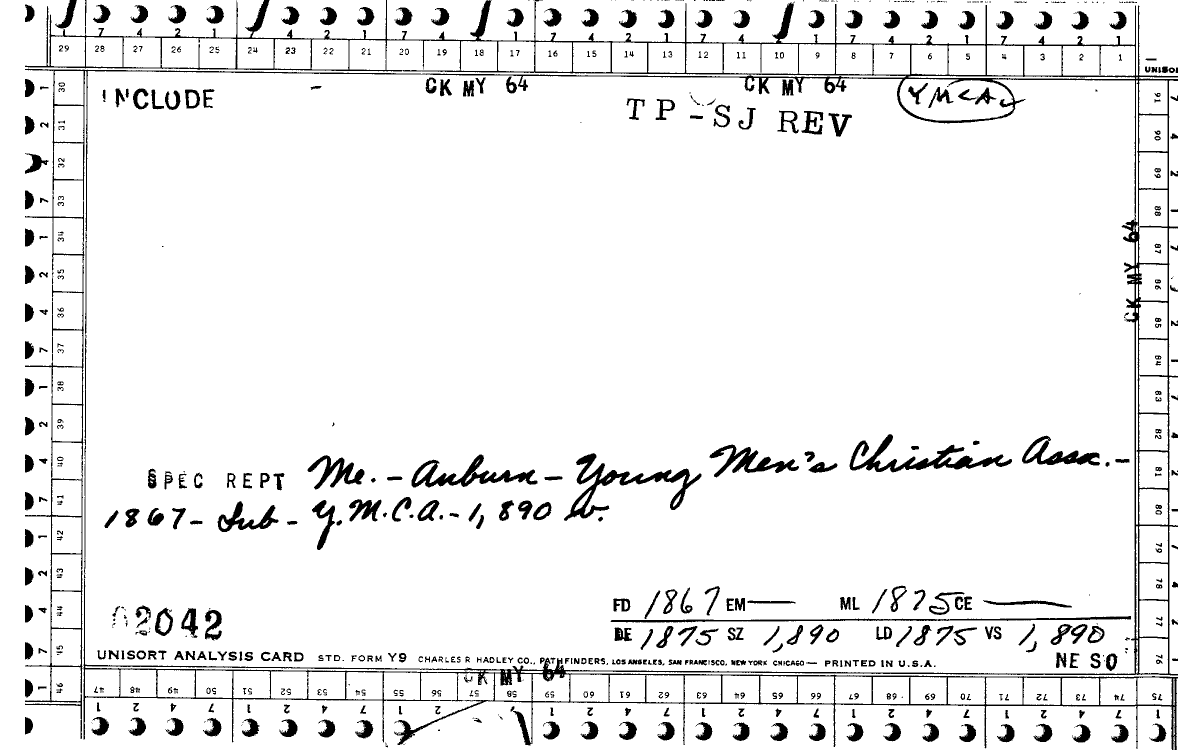 7 4 2 1 7 4 2 1 7 4 1 7 4 2 1 7 4 1 7 4 2 1 7 4 2 1
29 28 27 26 25 24 23 22 21 20 19 18 17 16 15 14 13 12 11 10 9 8 7 6 5 4 3 2 1
UNISO
INCLUDE CK MY 64 CK MY 64 YMCA
TP-SJ REV
30 31 32 33 34 35 36 37 38 39 40 41 42 43 44 45 46
91 90 89 88 87 86 85 84 83 82 81 80 79 78 77 76
CK MY 64
SPEC REPT Me. - Auburn - Young Men's Christian Assn. -
1867 - Sub - Y.M.C.A. - 1,890 v.
FD 1867 EM — ML 1875 CE —
02042
DE 1875 SZ 1,890 LD 1875 VS 1,890
UNISORT ANALYSIS CARD STD. FORM Y9 CHARLES R HADLEY CO., PATHFINDERS, LOS ANGELES, SAN FRANCISCO, NEW YORK CHICAGO — PRINTED IN U.S.A.
NE SO
CK MY 64
47 48 49 50 51 52 53 54 55 56 57 58 59 60 61 62 63 64 65 66 67 68 69 70 71 72 73 74 75
1 2 4 7 1 2 4 7 1 2 7 1 2 4 7 1 2 4 7 1 2 4 7 1 2 4 7 1